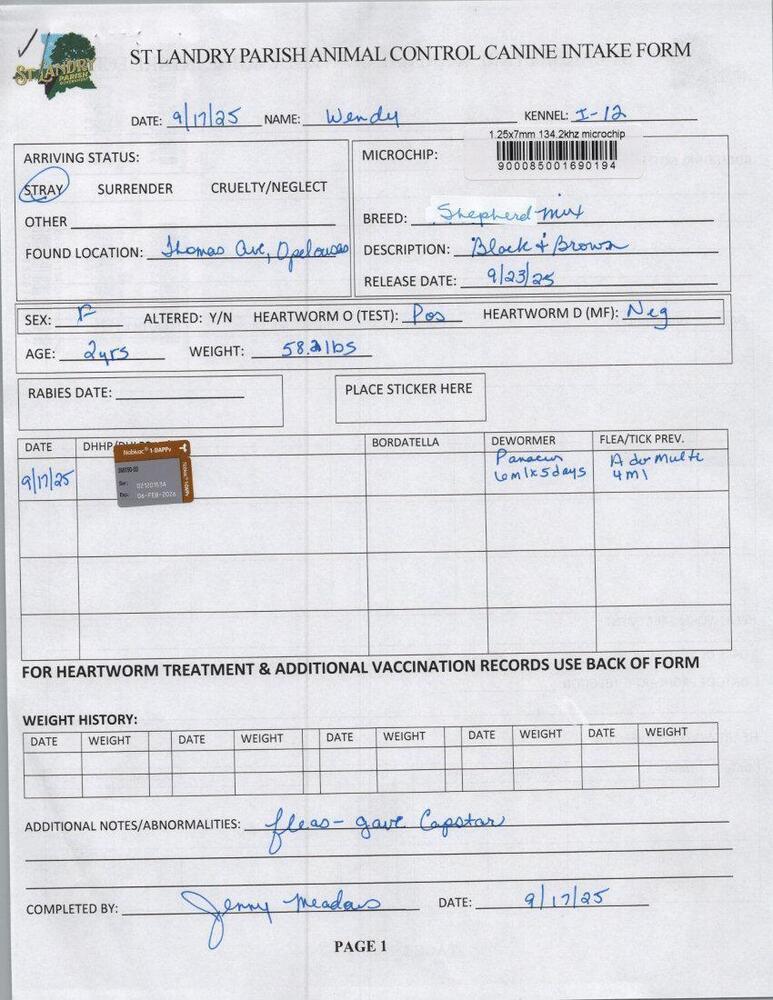 ST LANDRY
PARISH
ST LANDRY PARISH ANIMAL CONTROL CANINE INTAKE FORM
DATE: 9/17/25 NAME: Wendy KENNEL: I-12
ARRIVING STATUS:
STRAY SURRENDER CRUELTY/NEGLECT
OTHER
FOUND LOCATION: Thomas Ave, Opelousas
MICROCHIP: 1.25x7mm 134.2khz microchip
900085001690194
BREED: Shepherd mix
DESCRIPTION: Black & Brown
RELEASE DATE: 9/23/25
SEX: F ALTERED: Y/N HEARTWORM O (TEST): Pos HEARTWORM D (MF): Neg
AGE: 2yrs WEIGHT: 58.2 lbs
RABIES DATE: PLACE STICKER HERE
DATE DHHP/ BORDATELLA DEWORMER FLEA/TICK PREV.
9/17/25 Nobivac 1-DAPPv Panacur 6mlx5days Advmulti 4ml
Ser: 02120153A
Exp: 06-FEB-2026
FOR HEARTWORM TREATMENT & ADDITIONAL VACCINATION RECORDS USE BACK OF FORM
WEIGHT HISTORY:
DATE WEIGHT DATE WEIGHT DATE WEIGHT DATE WEIGHT DATE WEIGHT
ADDITIONAL NOTES/ABNORMALITIES: fleas- gave Capstar
COMPLETED BY: Jenny Meadows DATE: 9/17/25
PAGE 1